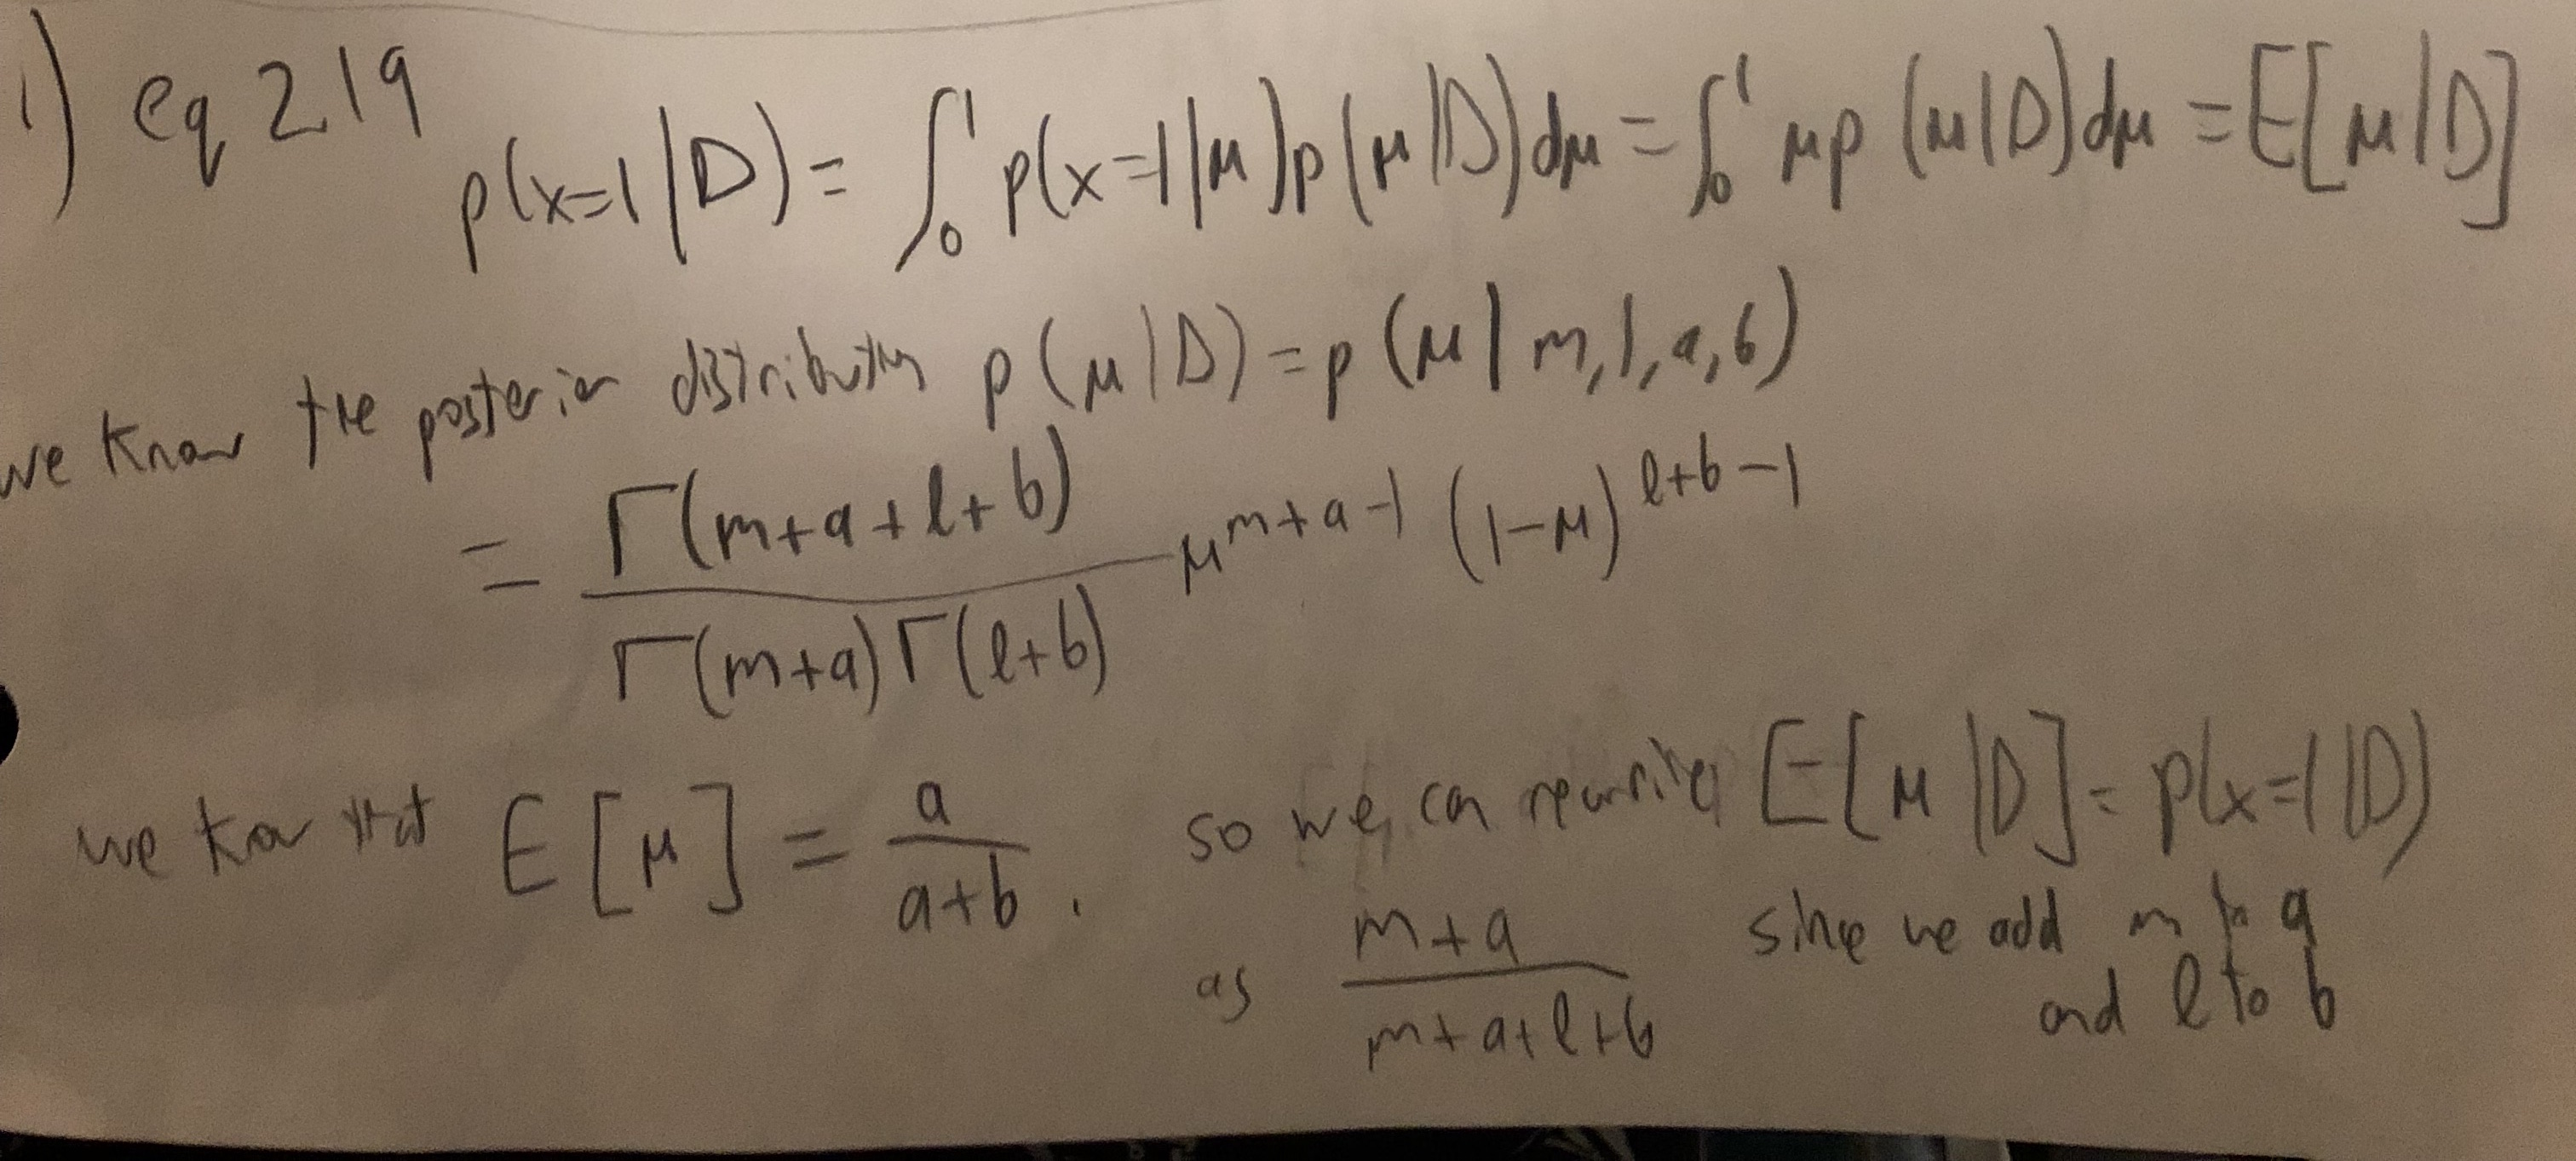 1) eq 2.19
p(x=1|D) = ∫₀¹ p(x=1|μ)p(μ|D)dμ = ∫₀¹ μp(μ|D)dμ = E[μ|D]
we know the posterior distribution p(μ|D) = p(μ|m,l,a,b)
= Γ(m+a+l+b) / Γ(m+a)Γ(l+b) μ^(m+a-1) (1-μ)^(l+b-1)
we know that E[μ] = a / a+b . so we can rewrite E[μ|D] = p(x=1|D)
as m+a / m+a+l+b since we add m to a
and l to b